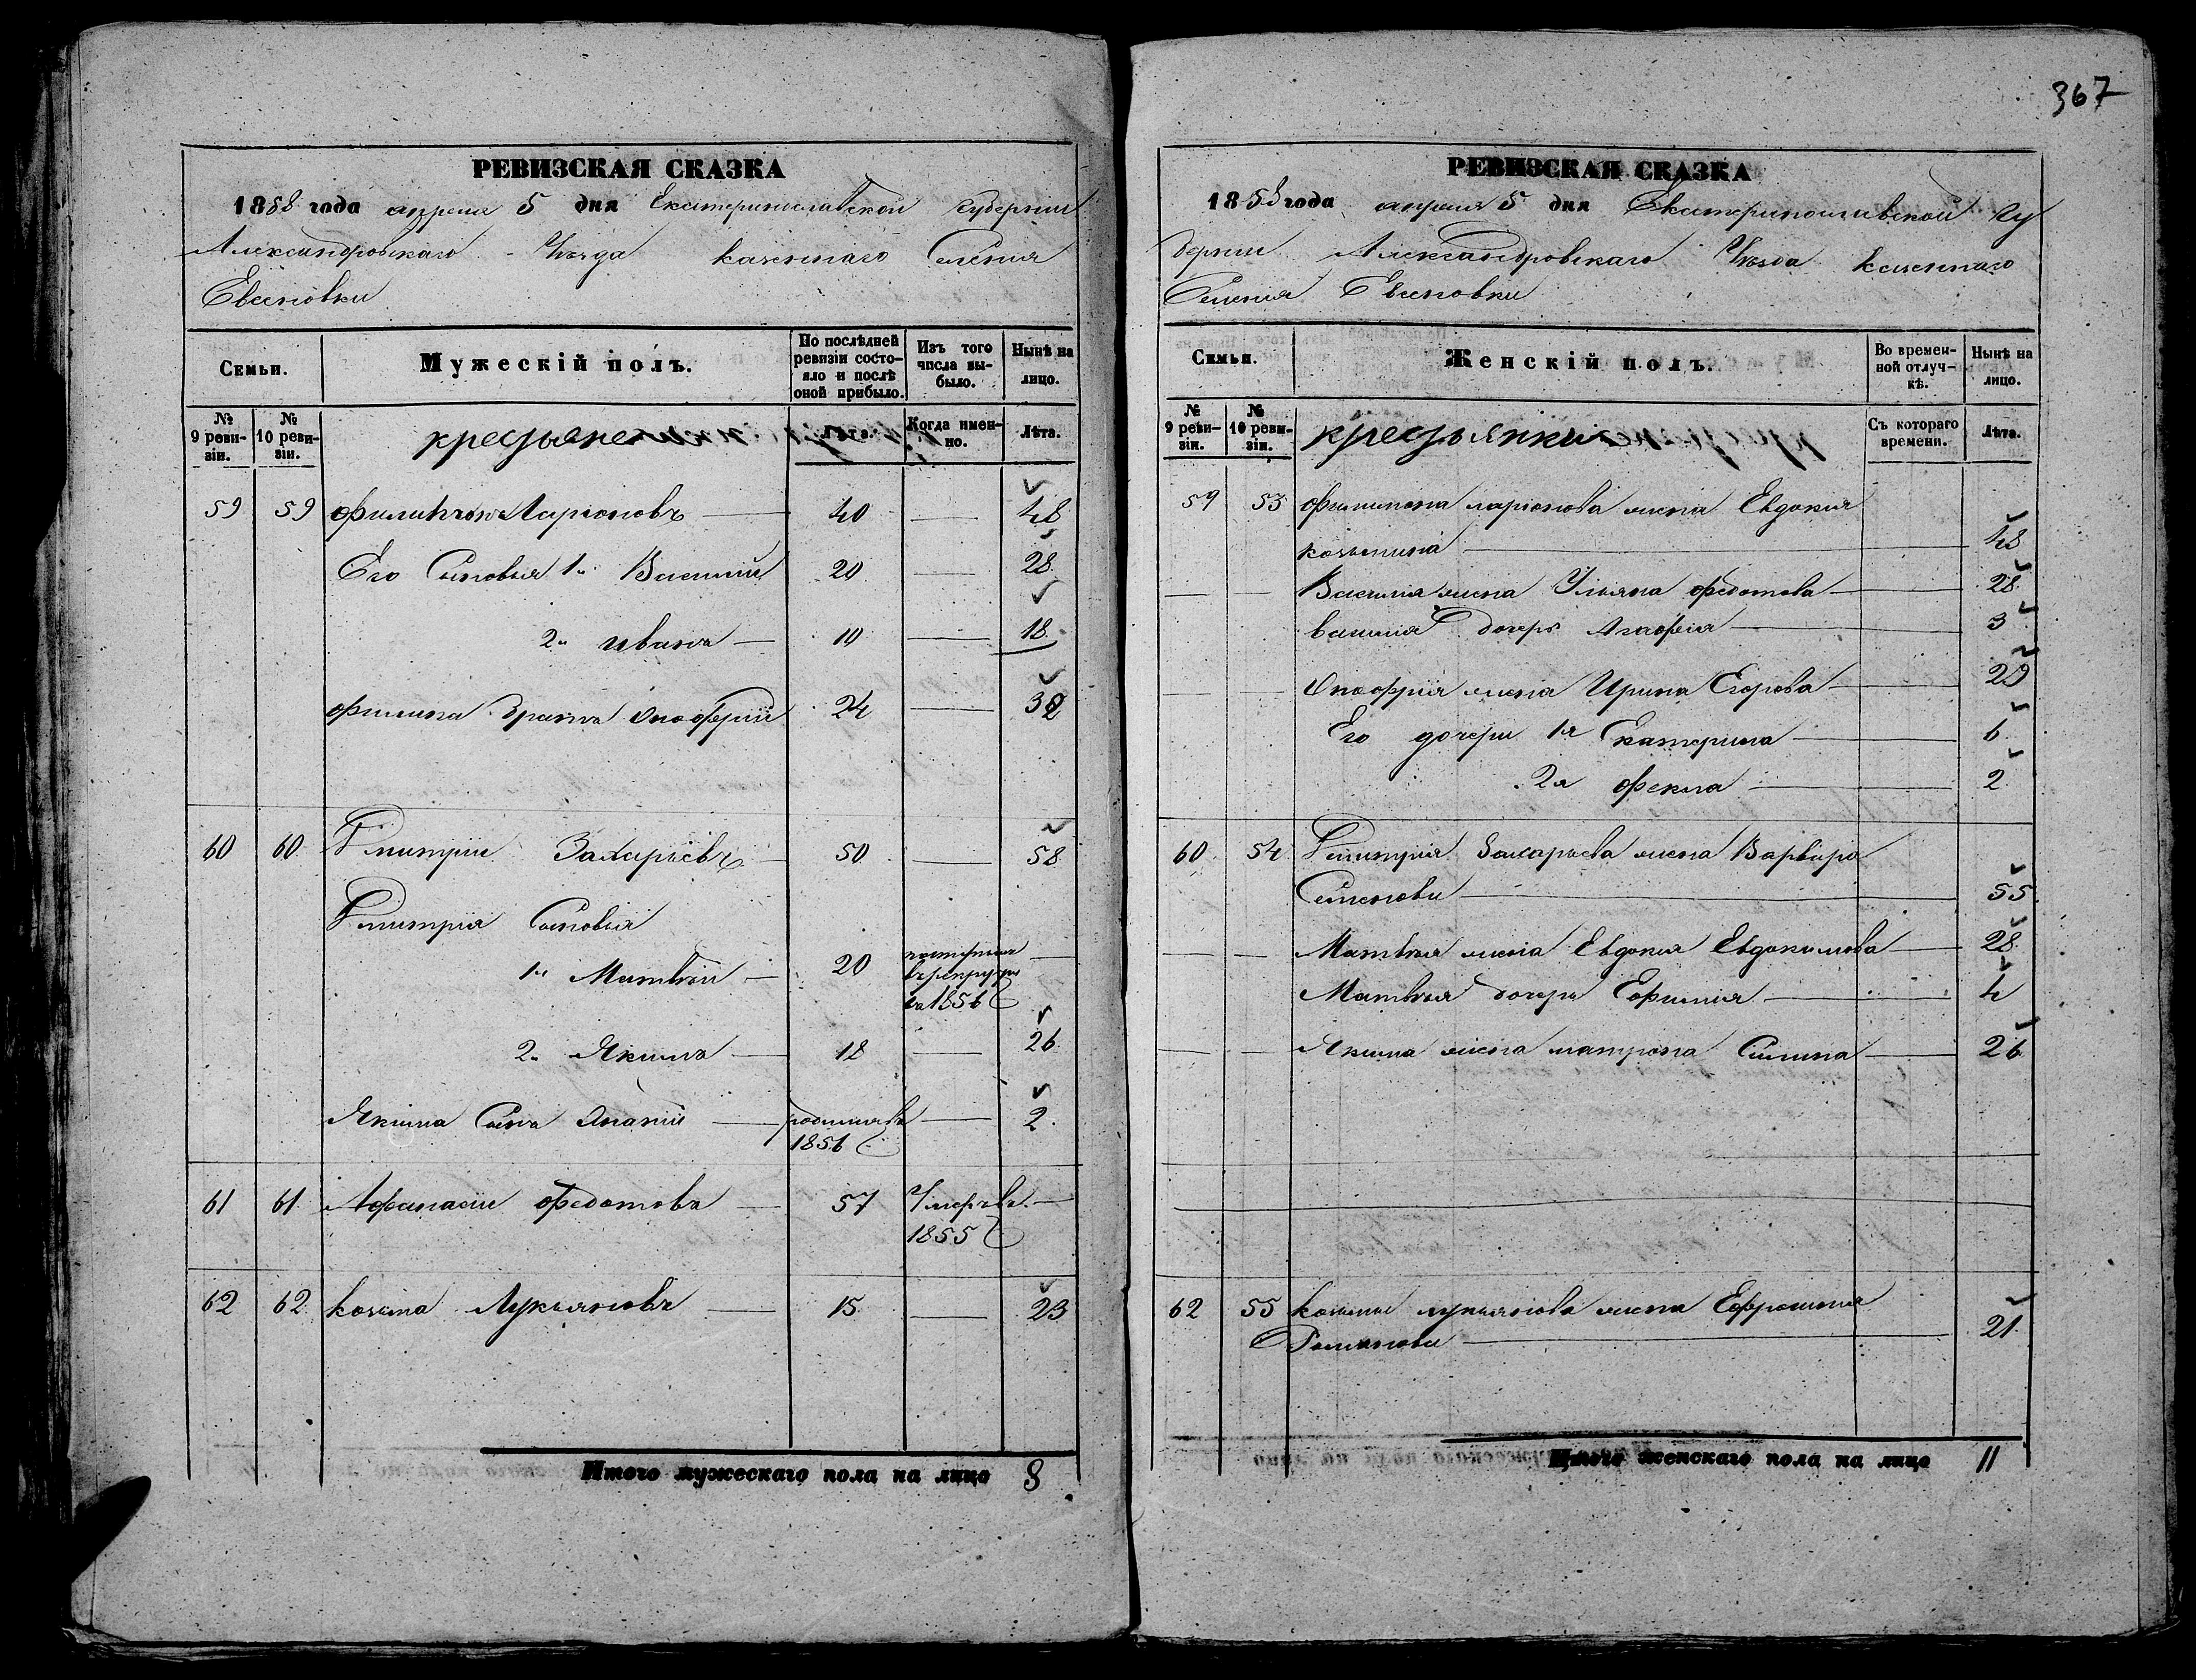 367
РЕВИЗСКАЯ СКАЗКА
1858 года апреля 5 дня Екатеринославской Губернии
Александровскаго Уѣзда казеннаго Селения
Евсиовки
Семьи.
Мужескій полъ.
По послѣдней ревизіи состояло и послѣ оной прибыло.
Изъ того числа выбыло.
Нынѣ на лицо.
№ 9 ревизіи.
№ 10 ревизіи.
крестьяне
Когда именно.
Лѣта.
59 59 Филимонъ Ларіоновъ 40 — 48
Его Сыновья 1й Василий 20 — 28
2й иванъ 10 — 18
Филипа братъ Онофрий 24 — 32
60 60 Дмитрии Захарьевъ 50 — 58
Дмитрия Сыновья
1й Матвѣи 20 —
в рекруты
в 1856
2й Якимъ 18 — 26
Якима Сынъ Ананий родился в 1856 — 2
61 61 Афанасии Федотовъ 57 Умеръ в 1855 —
62 62 козьма Лукьяновъ 15 — 23
Итого мужескаго пола на лицо 8
РЕВИЗСКАЯ СКАЗКА
1858 года апреля 5 дня Екатеринославской Гу
бернии Александровскаго Уѣзда казеннаго
Селения Евсиовки
Семьи.
Женскій полъ.
Во временной отлучкѣ.
Нынѣ на лицо.
№ 9 ревизіи.
№ 10 ревизіи.
крестьянки
Съ котораго времени.
Лѣта.
59 53 Филимона ларионова жена Евдокия
козьмина 48
— — Василия жена Ульяна федотова 28
василия дочерь Агафия 3
— — Онофрия жена Ирина Егорова 29
Его дочери 1я Екатерина 6
2я Фекла 2
60 54 Дмитрия Захарьева жена Варвара
Семенова 55
— — Матвѣя жена Евдокия Евдокимова 28
Матвѣя дочерь Ефимия 4
— — Якима жена матрона Силина 26
62 55 козьмы лукьянова жена Ефросиния
Романова 21
Итого женскаго пола на лицо 11